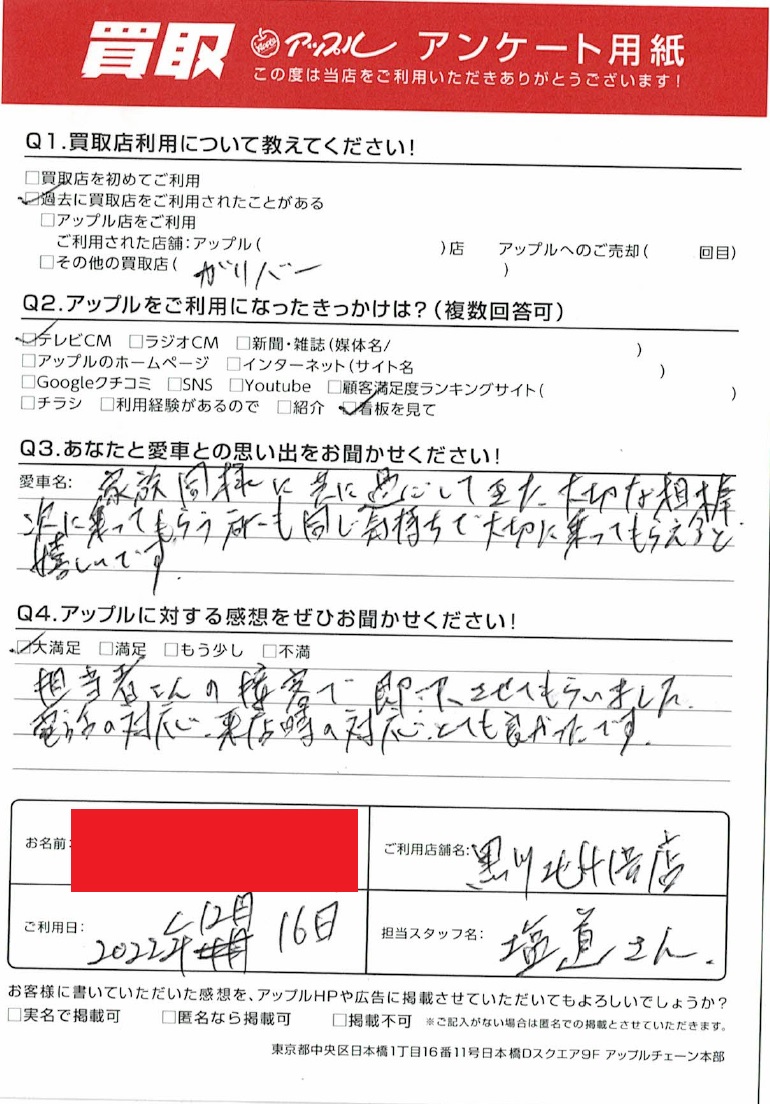 買取 アップル アンケート用紙
この度は当店をご利用いただきありがとうございます!
Q1.買取店利用について教えてください!
□買取店を初めてご利用
☑過去に買取店をご利用されたことがある
□アップル店をご利用
ご利用された店舗:アップル( )店 アップルへのご売却( 回目)
□その他の買取店( ガリバー )
Q2.アップルをご利用になったきっかけは?(複数回答可)
☑テレビCM □ラジオCM □新聞・雑誌(媒体名/ )
□アップルのホームページ □インターネット(サイト名 )
□Googleクチコミ □SNS □Youtube □顧客満足度ランキングサイト( )
□チラシ □利用経験があるので □紹介 ☑看板を見て
Q3.あなたと愛車との思い出をお聞かせください!
愛車名: 家族同様に共に過ごして来た大切な相棒
次に乗ってもらう方にも同じ気持ちで大切に乗ってもらえると
嬉しいです。
Q4.アップルに対する感想をぜひお聞かせください!
☑大満足 □満足 □もう少し □不満
担当者さんの接客で即決させてもらいました。
電話の対応、来店時の対応、とても良かったです。
お名前:
ご利用店舗名: 黒川北店
ご利用日: 2022年12月16日
担当スタッフ名: 塩道さん。
お客様に書いていただいた感想を、アップルHPや広告に掲載させていただいてもよろしいでしょうか?
□実名で掲載可 □匿名なら掲載可 □掲載不可 ※ご記入がない場合は匿名での掲載とさせていただきます。
東京都中央区日本橋1丁目16番11号日本橋Dスクエア9F アップルチェーン本部